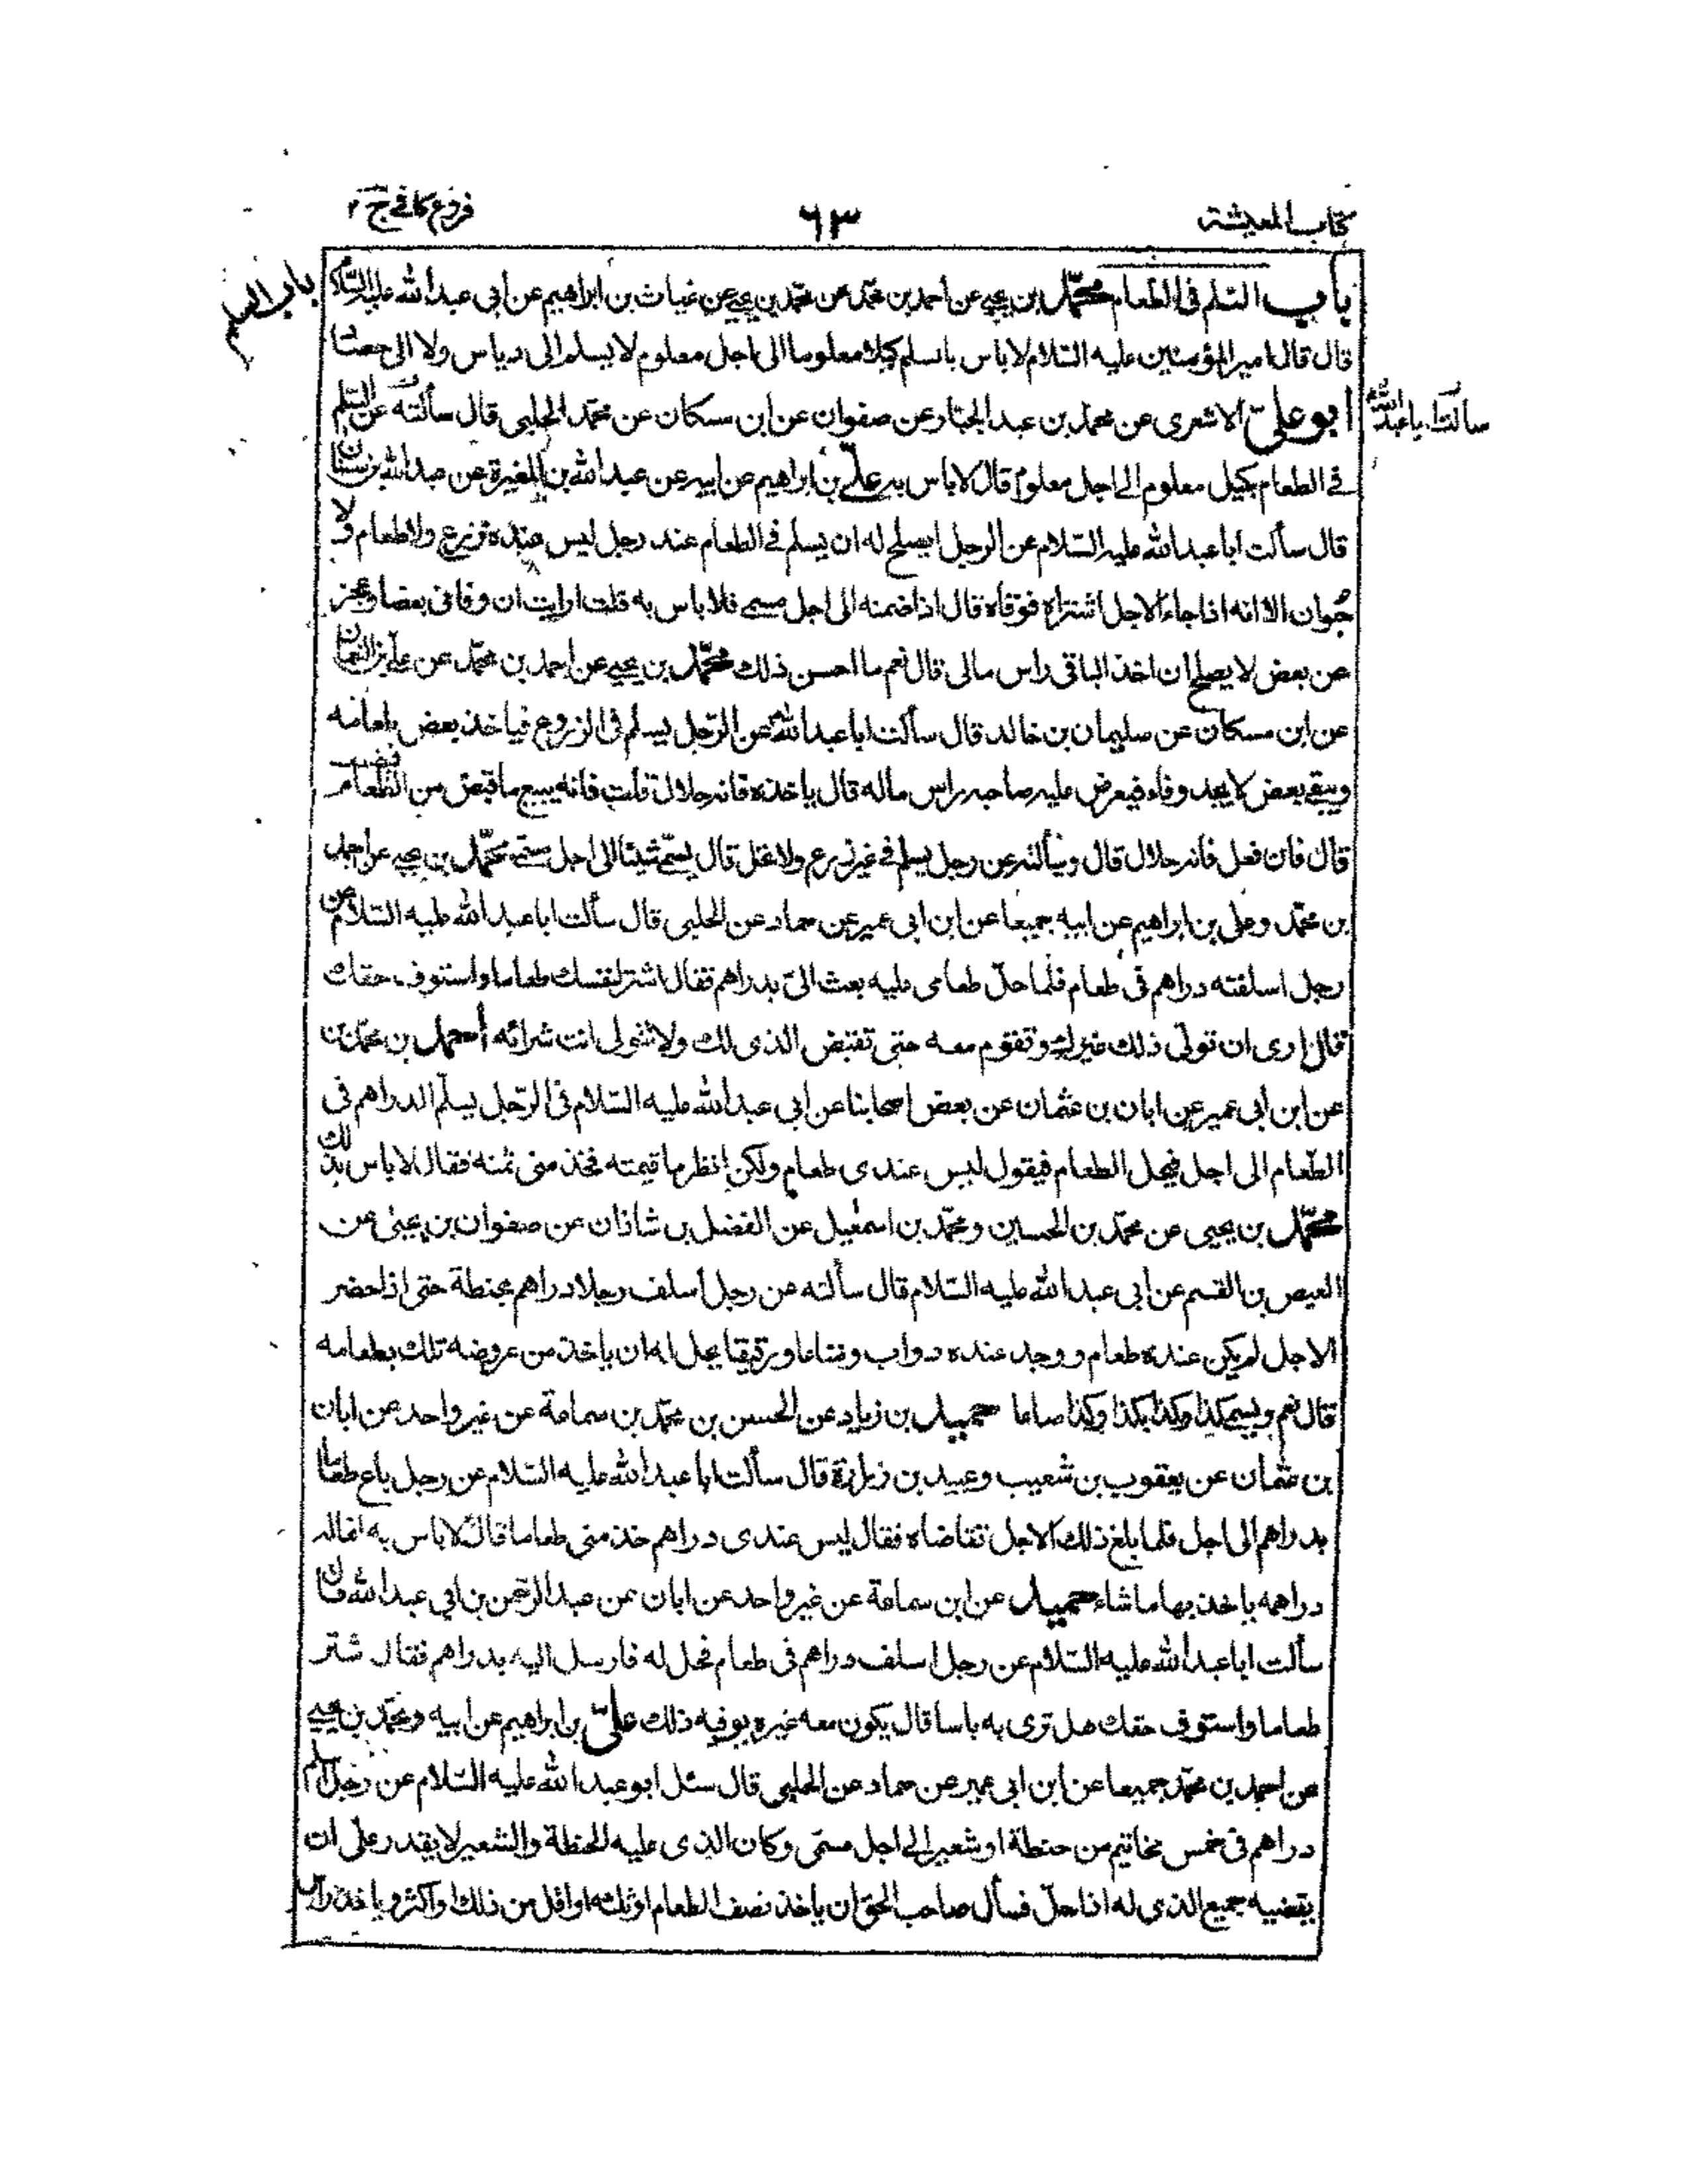 كتاب المعيشة
٦٣
فروع كافي ج ٢
باب السلم
باب السلم فى الطعام محمّد بن يحيى عن احمد بن محمّد عن محمّد بن يحيى عن غياث بن ابراهيم عن أبى عبدالله عليه السّلام
قال قال امير المؤمنين عليه السّلام لا باس بالسلم كيلا معلوما الى اجل معلوم لا يسلم الى دياس ولا الى حصاد
أبو علىّ الاشعرى عن محمد بن عبد الجبّار عن صفوان عن ابن مسكان عن محمد الحلبى قال سألته عن السّلم
سألت ابا عبدالله
فى الطعام بكيل معلوم الى اجل معلوم قال لا باس به علىّ بن ابراهيم عن ابيه عن عبدالله بن المغيرة عن عبدالله بن سنان
قال سألت ابا عبدالله عليه السّلام عن الرجل ايصلح له ان يسلم فى الطعام عند رجل ليس عنده زرع ولا طعام ولا
حيوان الا انه اذا جاء الاجل اشتراه فوفاه قال اذا ضمنه الى اجل مسمى فلا باس به قلت ارايت ان وفانى بعضا وعجز
عن بعض لا يصلح ان اخذ الباقى راس مالى قال نعم ما احسن ذلك محمّد بن يحيى عن احمد بن محمّد عن على بن النعمان
عن ابن مسكان عن سليمان بن خالد قال سألت ابا عبدالله عن الرّجل يسلم فى الزروع فياخذ بعض طعامه
ويبقى بعض لا يجد وفاء فيعرض عليه صاحبه راس ماله قال ياخذه فانه حلال قلت فانه يبيع ما قبض من الطّعام
قال فان فعل فانه حلال قال وسألته عن رجل يسلم فى غير زرع ولا نخل قال يسمّى شيئا الى اجل مسمّى محمّد بن يحيى عن احمد
بن محمّد وعلى بن ابراهيم عن ابيه جميعا عن ابن ابى عمير عن حماد عن الحلبى قال سألت ابا عبدالله عليه السّلام عن
رجل اسلفته دراهم فى طعام فلما حلّ طعامى عليه بعث الىّ بدراهم فقال اشتر لنفسك طعاما واستوف حقك
قال ارى ان تولّى ذلك غيرك وتقوم معه حتى تقبض الذى لك ولا تتولى انت شرائه أحمد بن محمّد بن
عن ابن ابى عمير عن ابان بن عثمان عن بعض اصحابنا عن ابى عبدالله عليه السّلام فى الرّجل يسلّم الدراهم فى
الطّعام الى اجل فيحل الطعام فيقول ليس عندى طعام ولكن انظر ما قيمته فخذ منى ثمنه فقال لا باس بذلك
محمّد بن يحيى عن محمّد بن الحسين ومحمّد بن اسمعيل عن الفضل بن شاذان عن صفوان بن يحيى عن
العيص بن القسم عن أبى عبدالله عليه السّلام قال سألته عن رجل أسلف رجلا دراهم بحنطة حتى اذا حضر
الاجل لم يكن عنده طعام ووجد عنده دواب ومتاعا ورقيقا يحل له ان ياخذ من عروضه تلك بطعامه
قال نعم ويسمى كذا وكذا بكذا وكذا صاعا حميد بن زياد عن الحسن بن محمّد بن سماعة عن غير واحد عن ابان
بن عثمان عن يعقوب بن شعيب وعبيد بن زرارة قال سألت ابا عبدالله عليه السّلام عن رجل باع طعاما
بدراهم الى اجل فلما بلغ ذلك الاجل تقاضاه فقال ليس عندى دراهم خذ منى طعاما قال لا باس به انما له
دراهمه ياخذ بها ما شاء حميد عن ابن سماعة عن غير واحد عن ابان عن عبد الرّحمن بن ابى عبدالله قال
سألت ابا عبدالله عليه السّلام عن رجل اسلف دراهم فى طعام فحل له فارسل اليه بدراهم فقال شتر
طعاما واستوفى حقك هل ترى به باسا قال يكون معه غيره يوفيه ذلك علىّ بن ابراهيم عن ابيه ومحمّد بن يحيى
عن احمد بن محمّد جميعا عن ابن ابى عمير عن حماد عن الحلبى قال سئل ابو عبدالله عليه السّلام عن رجل اسلم
دراهم فى خمس مخاتيم من حنطة او شعير الى اجل مسمّى وكان الذى عليه الحنطة والشعير لا يقدر على ان
يقضيه جميع الذى له اذا حلّ فسأل صاحب الحق ان ياخذ نصف الطعام او ثلثه او اقل من ذلك او اكثر وياخذ راس